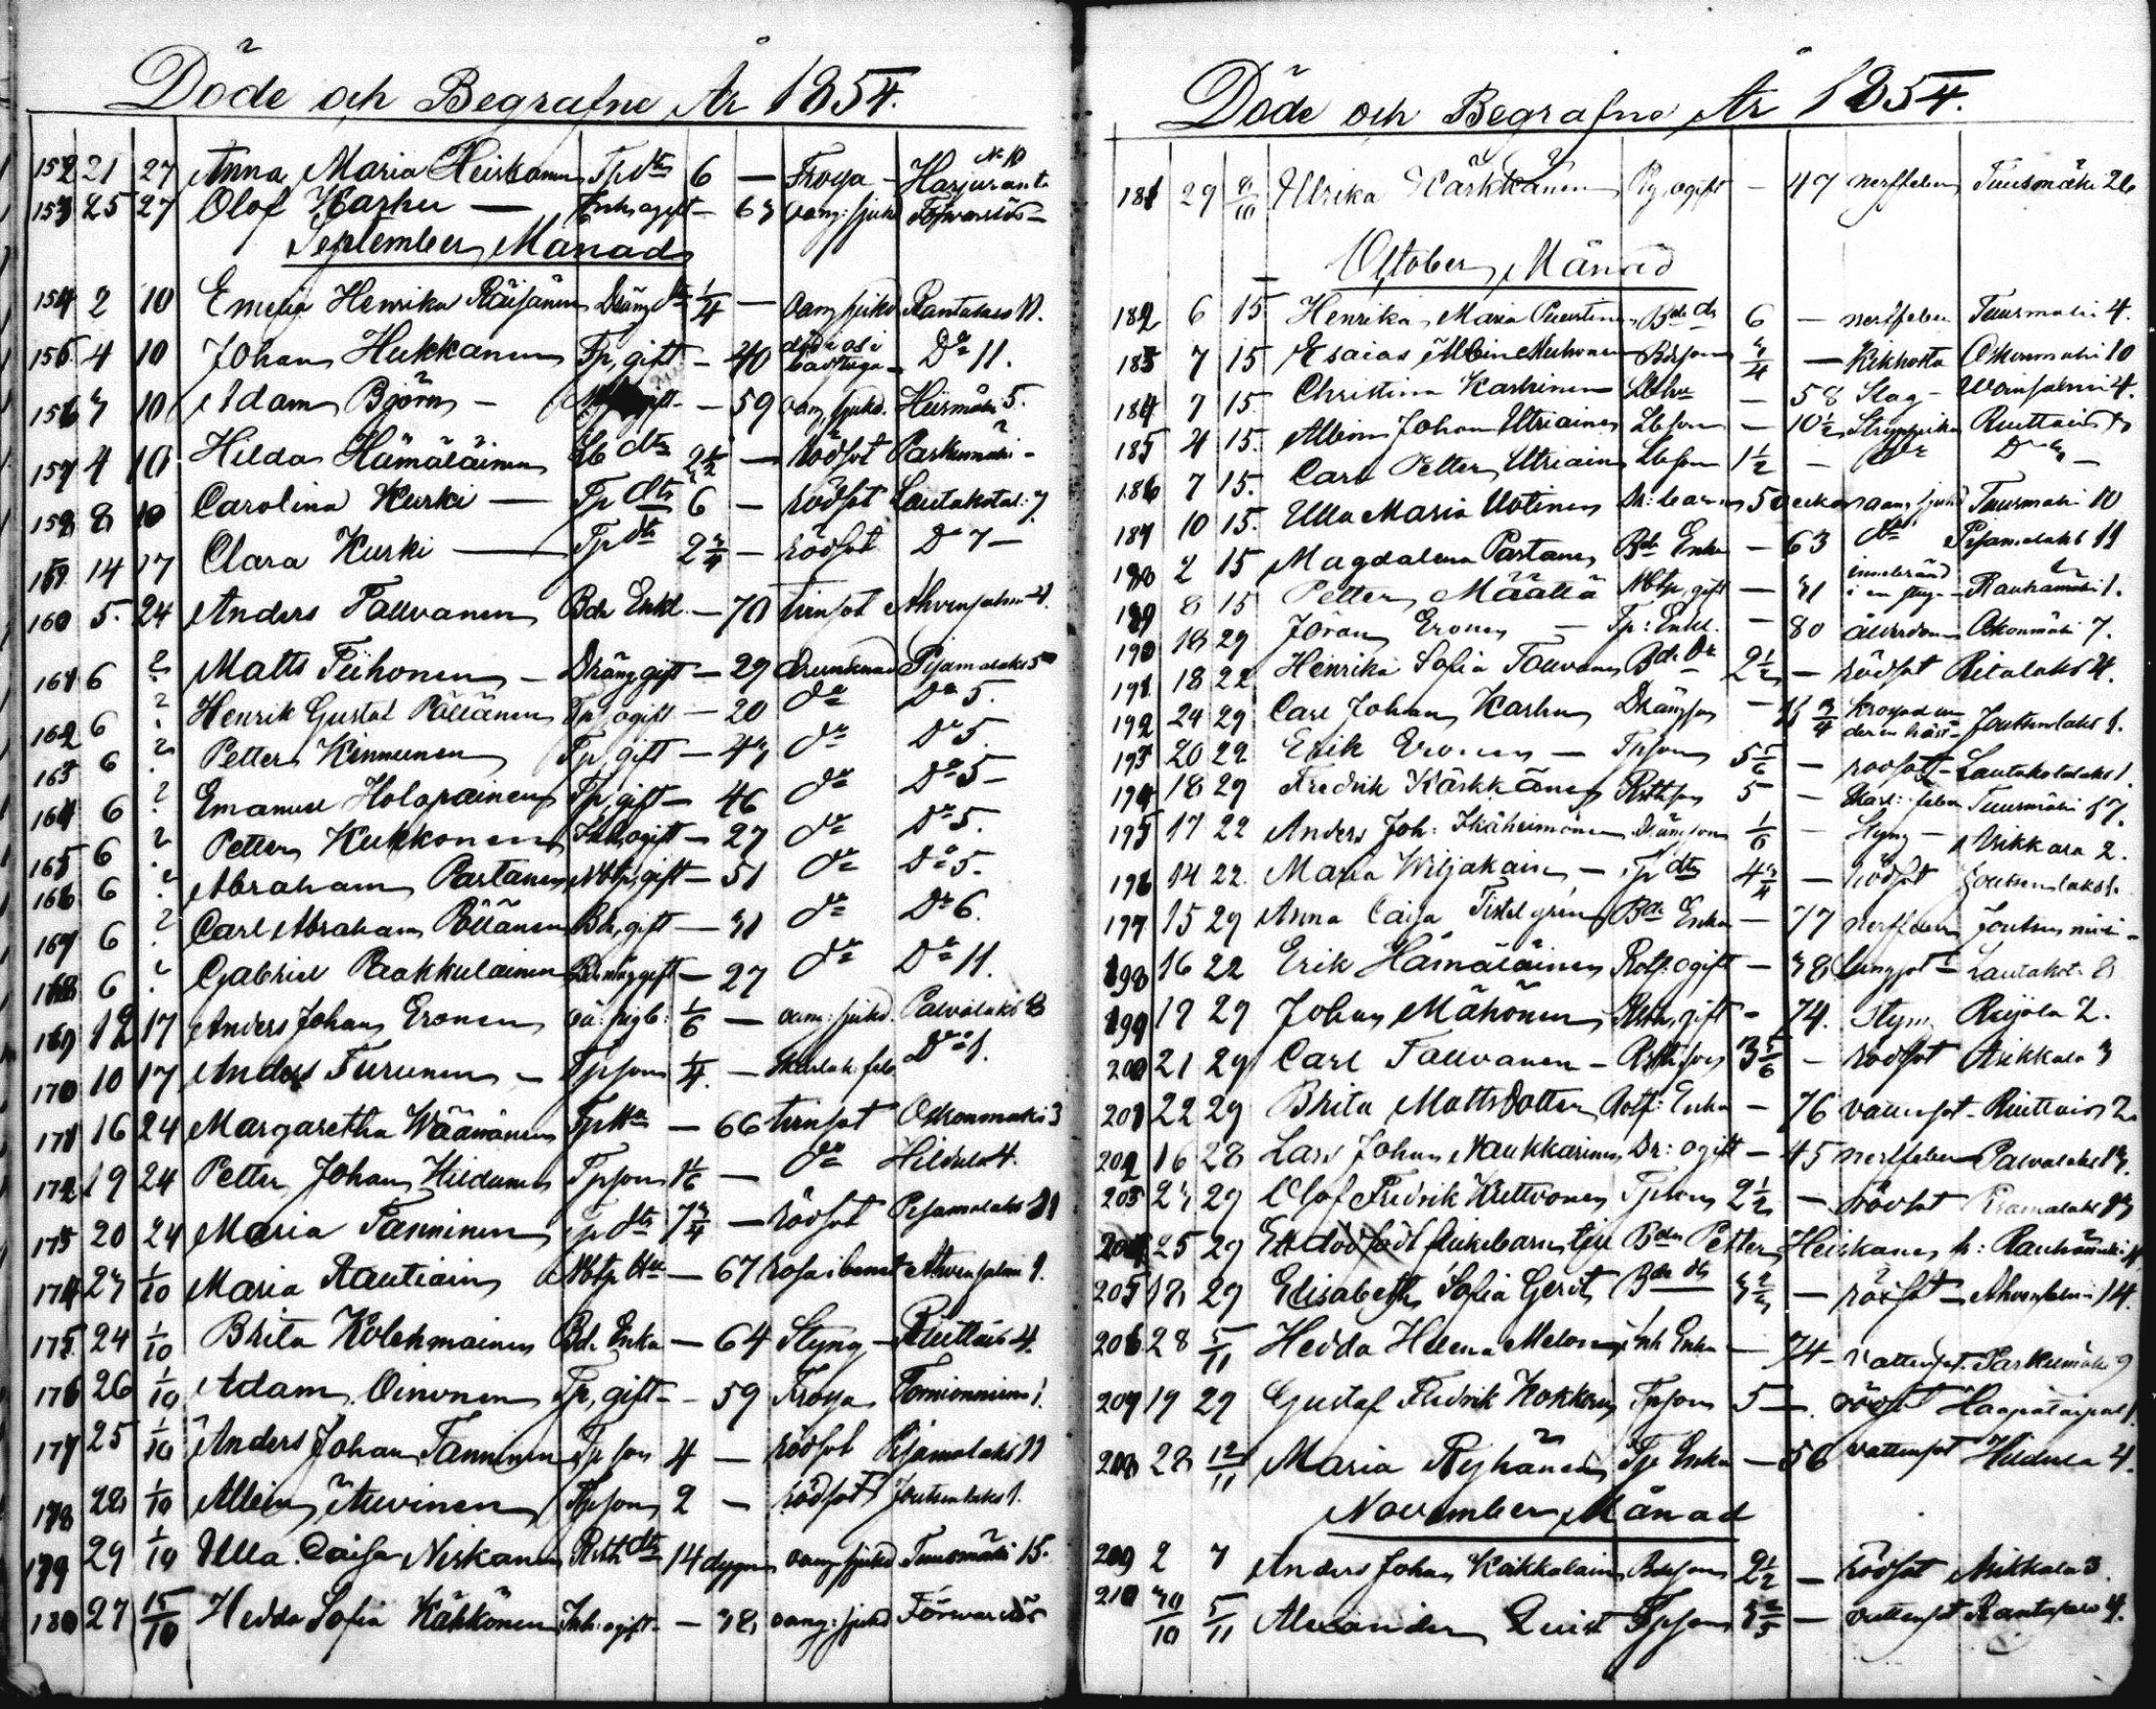 Döde och Begrafne År 1854.
152 21 27 Anna Maria Heiskanen Tp dtr 6 — Frossa - Harjuranta No 10
153 25 27 Olof Karhu — Inh, ogift - 63 oang: sjukd Förswarslös -
September Månad
154 2 10 Henrika Räisänen Dräng dtr 1/4 — oang sjukd Rantasalo 11.
155 4 10 Johan Hukkanen Tp, gift - 40 död i os i badstuga - Do 11.
156 3 10 Adam Björn - 59 oang sjukd. Heismäki 5.
157 4 10 Hilda Hämäläinen Lb dtr 2 1/2 — rödsot Parkunmäki -
158 8 10 Carolina Kurki — Tp dtr 6 — rödsot Lautakotal: 7
159 14 17 Clara Kurki — Tp dtr 2 3/4 — rödsot Do 7 —
160 5. 24 Anders Tollvanen Bde Enkl. — 70 tvinsot Ahvensalmi 4.
161 6 ? Matts Tiihonen — Dräng gift — 29 drunknad Pisamalaks 5
162 6 ? Henrik Gustaf Pöllänen Tp, ogift — 20 do Do 5.
163 6 ? Petter Kinnunen Tp, gift — 43 do Do 5.
164 6 ? Emanuel Holopainen Tp, gift — 46 do Do 5 —
165 6 ? Petter Kukkonen Inh, ogift — 27 do Do 5.
166 6 ? Abraham Partanen Nbtp, gift — 51 do Do 5.
167 6 ? Carl Abraham Pöllänen Bde, gift — 31 do Do 6.
168 6 ? Gabriel Paakkulainen gift — 27 do Do 11.
169 12 17 Anders Johan Eronen oä: pigb: 1/6 — oang: sjukd. Palvalaks 8
170 10 17 Anders Turunen — Tpson 1/4. — Skarlak. feb Do 1.
171 16 24 Margaretha Wäänänen Tp Ha — 66 tvinsot Oskonmäki 3
172 19 24 Petter Johan Hildunen Tpson 1 1/6 — do Hildula 4.
173 20 24 Maria Tanninen Tp dtr 7 3/4 — rödsot Pisamalaks 11
174 23 1/10 Maria Rautiain Nbtp Hu — 67 rosa i benet Ahvensalmi 1.
175. 24 1/10 Brita Kolehmainen Bd. Enka — 64 Styng — Ruuttais 4.
176 26 1/10 Adam Oinonen Tp, gift — 59 Frossa Tomionniemi 1.
177 25 1/10 Anders Johan Tanninen Tp son 4 — rödsot Pisamalaks 11
178 28 1/10 Albin Auvinen Tpson 2 — rödsot Joutsenlaks 1.
179 29 1/10 Ulla Caisa Niskanen Rsth dtr 14 dygn oang sjukd Tuusmäki 15.
180 27 15/10 Hedda Sofia Kähkönen Inh: ogift — 38 oang: sjukd Förswarslös
Döde och Begrafne År 1854.
181 29 8/10 Ulrika Kärkkäinen Pig. ogift — 47 nerffeber Tuusmäki 26
October Månad
182 6 15 Henrika Maria Puustinen Bde dtr 6 — nerffeber Tuusmäki 4.
183 7 15 Esaias Albin Bdeson 3/4 — Kikhosta Oskonmäki 10
184 7 15. Christina Karhinen Lb hu — 58 Slag —
185 4 15. Albin Johan Utriainen Lbson — 10 1/2 Ruuttais
186 7 15. Carl Petter Utriain Lbson 1 1/2 — Do —
187 10 15. Ulla Maria Uotinen 50 oang sjukd Tuusmäki 10
188 2 15 Magdalena Partanen Bde Enka — 63 do Pisamalaks 11
189 8 15 Petter Määttä Nbtp, gift — 31 innebränd i en — Rauhamäki 1.
190 18 29 Jöran Eronen — Tp: Enkl. — 80 ålderdom Oskonmäki 7.
191. 18 22 Henrika Sofia Tollvanen Bde Dr 2 1/2 — rödsot Ritolaks 4.
192 24 29 Carl Johan Karhu Drängson — 11 3/4 krossad under en häst — Joutsenlaks 1.
193 20 22 Erik Eronen — Tpson 5 5/6 — rödsot — Lautakotalaks 1.
194 18 29 Fredrik Kärkkänen Rsthson 5 — Skarl: feber Tuusmäki 17.
195 17 22 Anders Joh: Ikäheimonen Drängson 1/6 — Styng — 2.
196 14 22. Maria Wiljakain — Tp dtr 4 3/4 — rödsot Joutsenlaks 1.
197. 15 29 Anna Caisa Tistelgren Bde Enka — 77 nerffeber
198 16 22 Erik Hämäläinen Rotf: ogift — 38 lungsot — Lautakot: 8
199 19 29 Johan Mähönen Rsth, gift — 74. Styng Ruijola 2.
200 21 29 Carl Tollvanen — Rsthson 3 5/6 — rödsot Aikkala 3
201 22 29 Brita Mattsdotter Rotf: Enka — 76 vattensot — Ruuttais 2.
202 16 28 Lars Johan Naukkarinen Dr: ogift — 45 nerffeber Palvalaks 13.
203 23 29 Olof Fredrik Kuttvonen Tpson 2 1/2 — rödsot
204 25 29 Ett dödfödt flickebarn till Bden Petter Heiskanen h: Rauhamäki
205 18 29 Elisabeth Sofia Gerdt Bde dtr 3 1/2 — rödsot — Ahvensalmi 14.
206. 28 5/11 Hedda Helena Melonen Inh Enka — 74 — vattensot. Parkumäki 9
207 19 29 Gustaf Fredrik Kokkonen Tpson 5 —. rödsot Haapataipal 1.
208 28 12/11 Maria Reyhänen Tp Enka — 56 vattensot Hildula 4.
November Månad
209 2 7 Anders Johan Kaikkalain Bdeson 2 1/2 — rödsot Aikkala 3.
210 30/10 5/11 Alexander Quist Tpson 3 2/5 — vattensot Rantasalo 4.